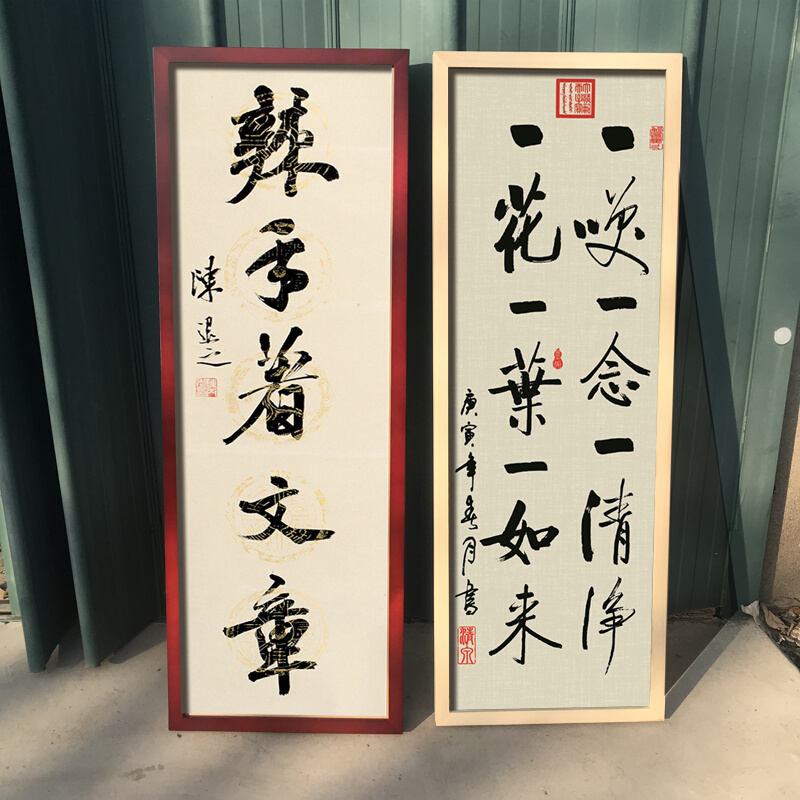 辢手著文章
陳退之
一咲一念一清净
一花一葉一如来
庚寅年春月書
清泉